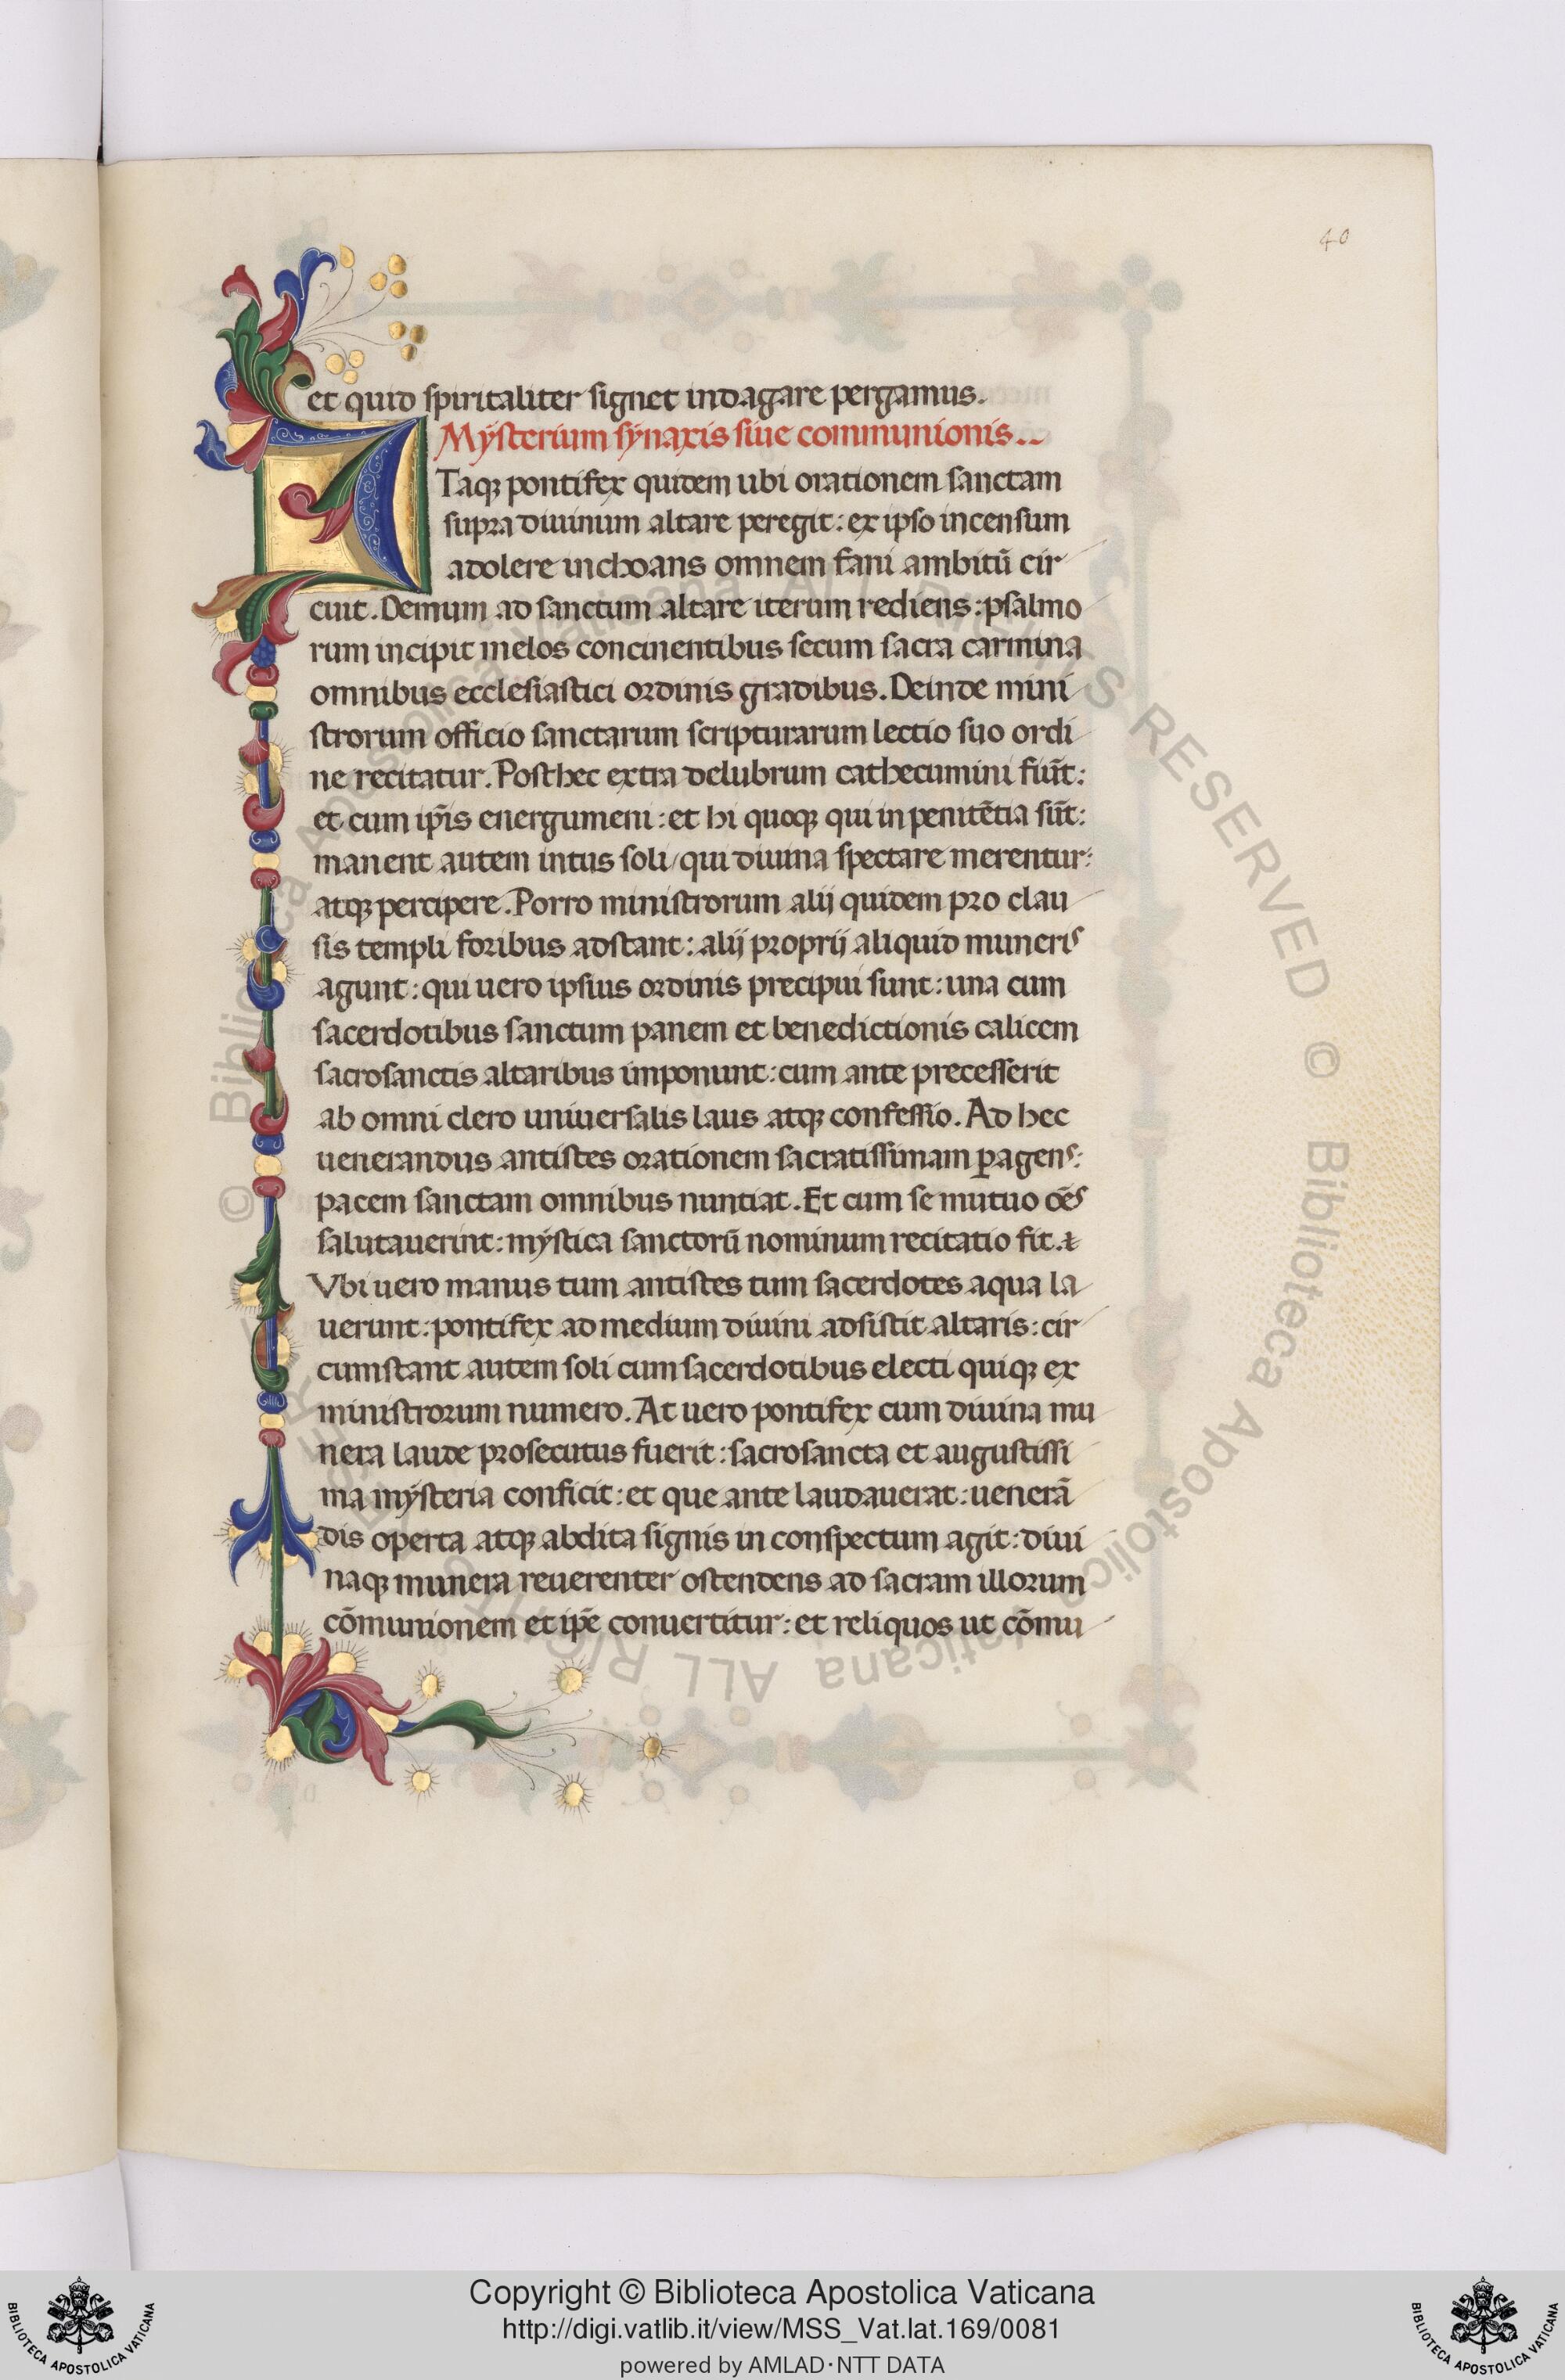 40
et quid spiritaliter signet indagare pergamus.
Mÿsterium sÿnaxis siue communionis..
ITaqꝫ pontifex quidem ubi orationem sanctam
supra diuinum altare peregit: ex ipso incensum
adolere inchoans omnem fani ambitū cir
cuit. Demum ad sanctum altare iterum rediens: psalmo
rum incipit melos concinentibus secum sacra carmina
omnibus ecclesiastici ordinis gradibus. Deinde mini
strorum officio sanctarum scripturarum lectio suo ordi
ne recitatur. Posthec extra delubrum cathecumini fiūt:
et cum ip̄is energumeni: et hi quoqꝫ qui in penitētia sūt:
manent autem intus soli/qui diuina spectare merentur:
atqꝫ percipere. Porro ministrorum alij quidem pro clau
sis templi foribus adstant: alij proprij aliquid muneris
agunt: qui uero ipsius ordinis precipui sunt: una cum
sacerdotibus sanctum panem et benedictionis calicem
sacrosanctis altaribus imponunt: cum ante precesserit
ab omni clero uniuersalis laus atqꝫ confessio. Ad hec
uenerandus antistes orationem sacratissimam ꝑagens:
pacem sanctam omnibus nuntiat. Et cum se mutuo oēs
salutauerint: mÿstica sanctorū nominum recitatio fit.
Vbi uero manus tum antistes tum sacerdotes aqua la
uerunt: pontifex ad medium diuini adsistit altaris: cir
cumstant autem soli cum sacerdotibus electi quiqꝫ ex
ministrorum numero. At uero pontifex cum diuina mu
nera laude prosecutus fuerit: sacrosancta et augustissi
ma mÿsteria conficit: et que ante laudauerat: uenerā
dis operta atqꝫ abdita signis in conspectum agit: diui
naqꝫ munera reuerenter ostendens ad sacram illorum
cōmunionem et ip̄e conuertitur: et reliquos ut cōmu
© Biblioteca Apostolica Vaticana ALL RIGHTS RESERVED © Biblioteca Apostolica Vaticana ALL RIGHTS RESERVED
Copyright © Biblioteca Apostolica Vaticana
http://digi.vatlib.it/view/MSS_Vat.lat.169/0081
powered by AMLAD·NTT DATA
BIBLIOTECA APOSTOLICA VATICANA
BIBLIOTECA APOSTOLICA VATICANA